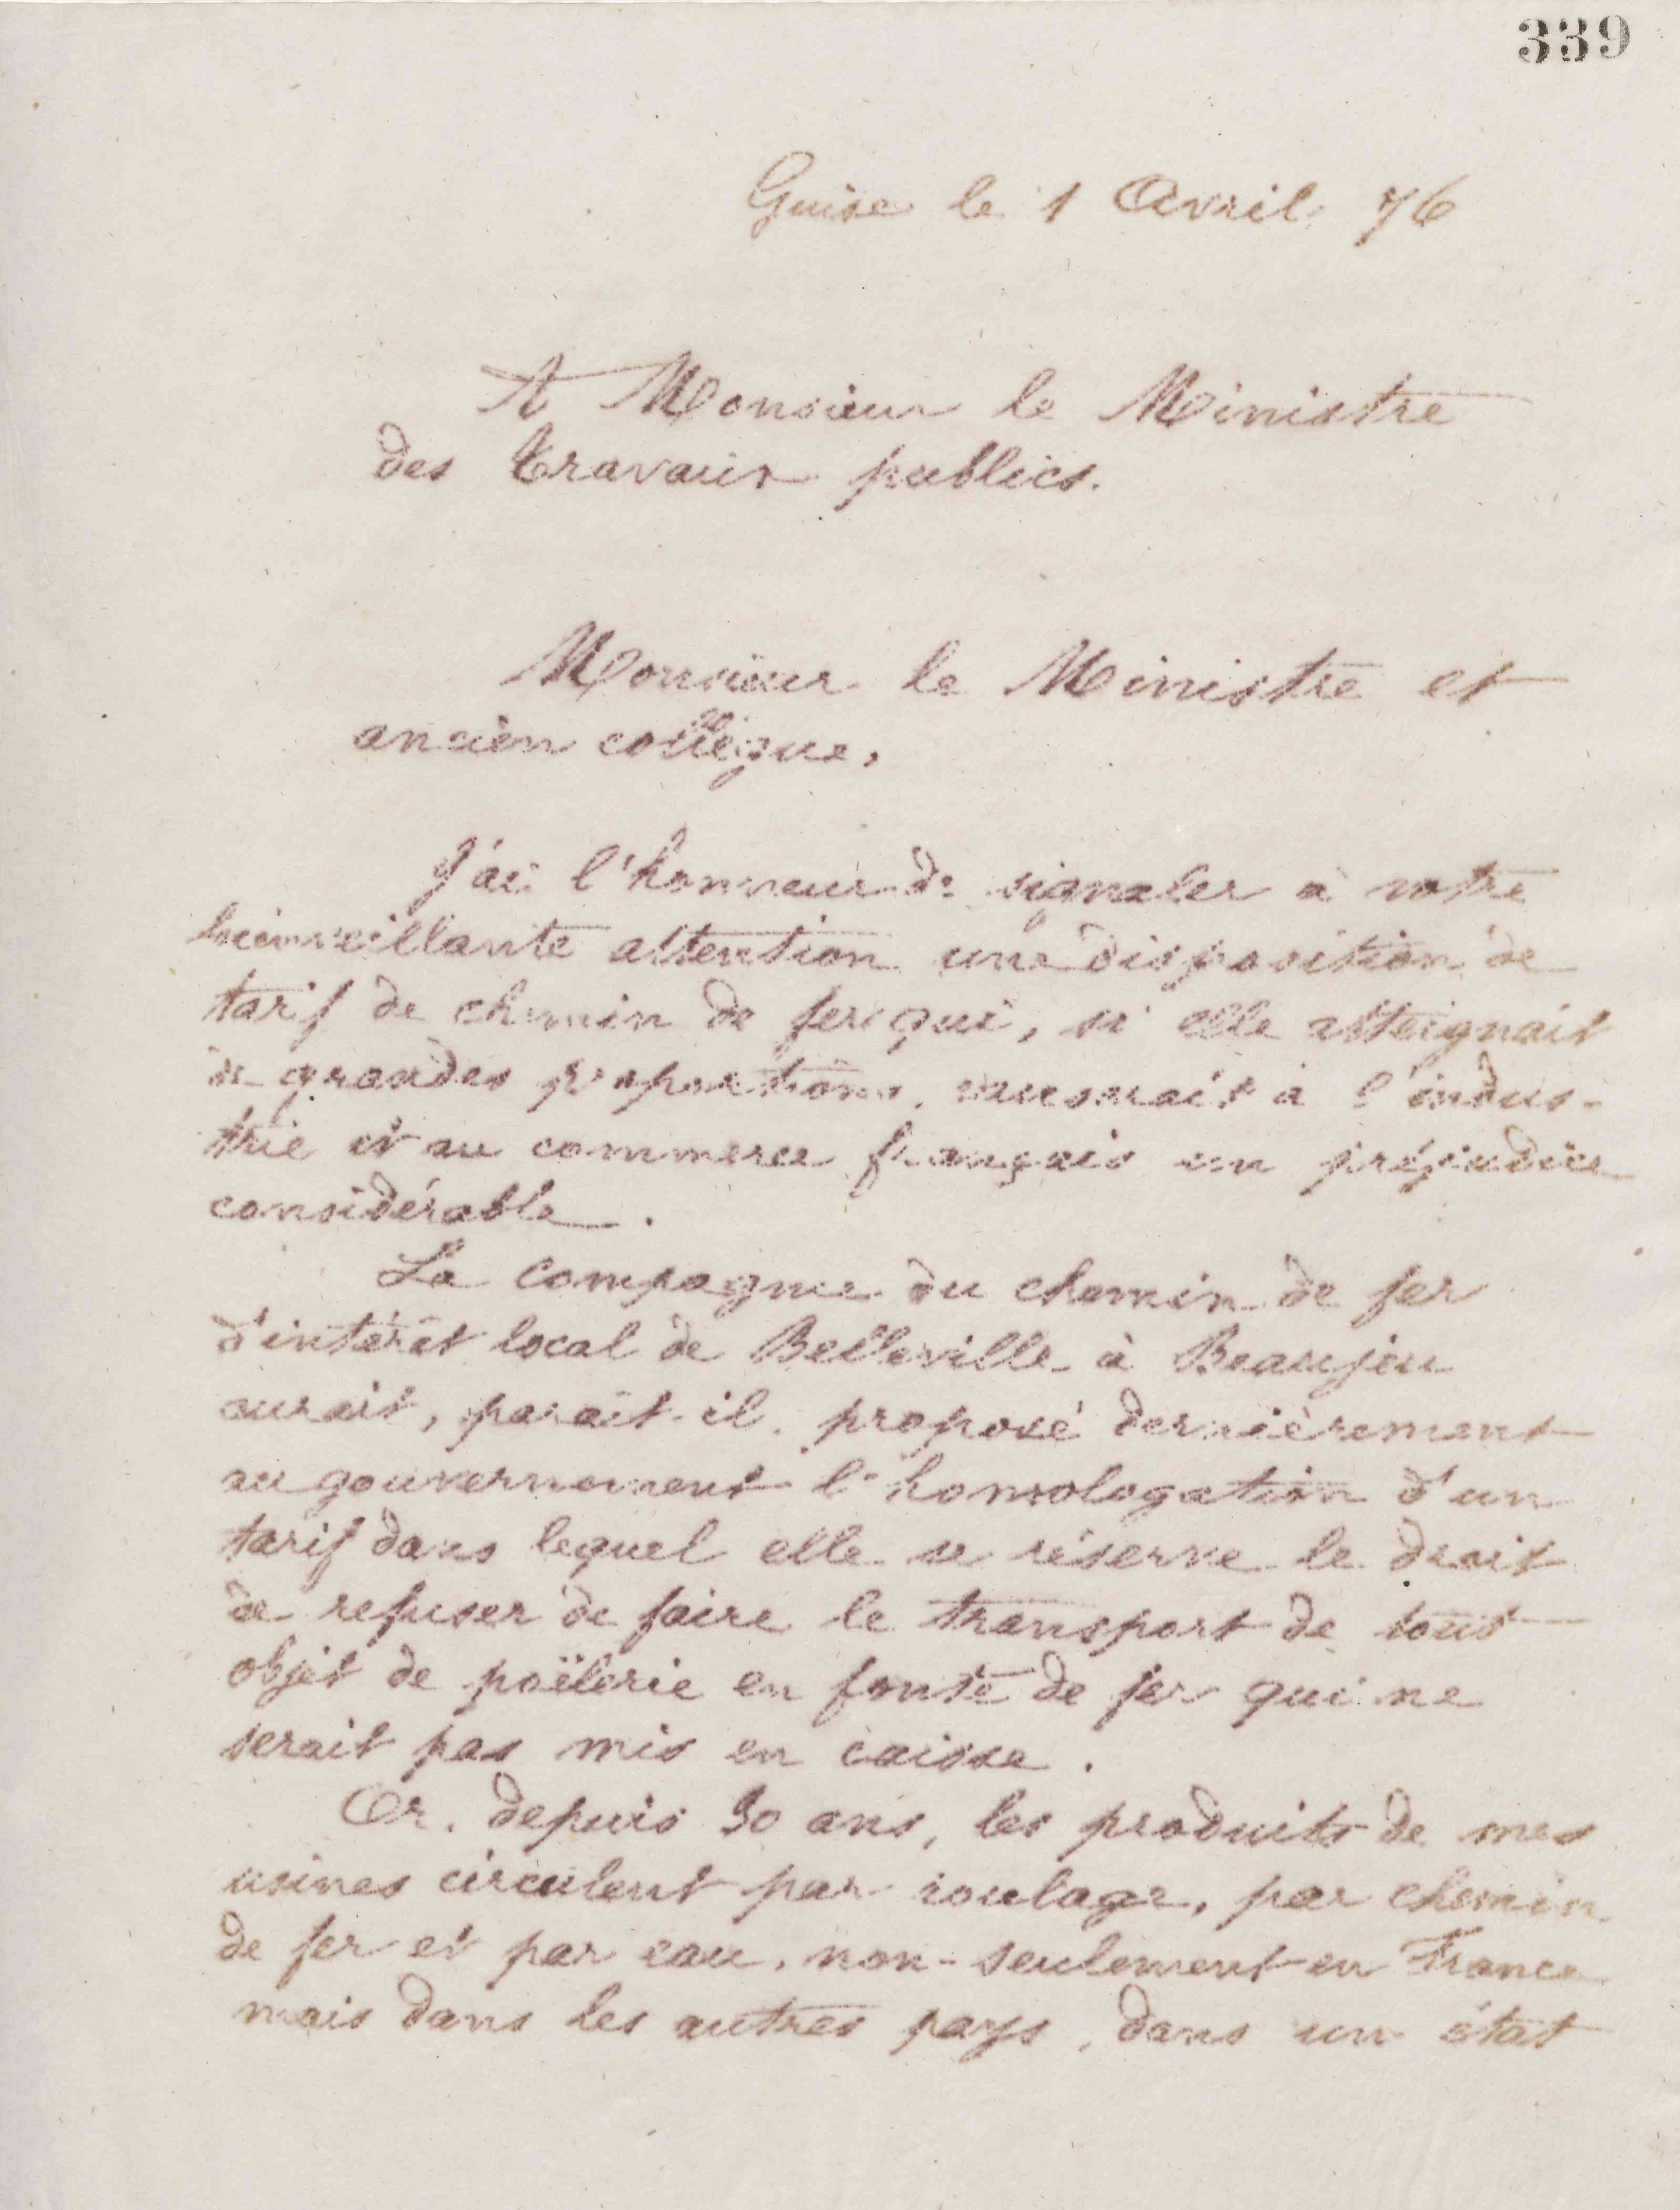 339
Guise le 1 Avril 76
A Monsieur le Ministre
des travaux publics.
Monsieur le Ministre et
ancien collègue,
J'ai l'honneur de signaler à votre
bienveillante attention une disposition de
tarif de chemin de fer qui, si elle atteignait
de grandes proportions, causerait à l'indus-
trie et au commerce français un préjudice
considérable.
La compagnie du chemin de fer
d'intérêt local de Belleville à Beaujeu
aurait, paraît-il, proposé dernièrement
au gouvernement l'homologation d'un
tarif dans lequel elle se réserve le droit
de refuser de faire le transport de tout
objet de poëlerie en fonte de fer qui ne
serait pas mis en caisse.
Or, depuis 30 ans, les produits de mes
usines circulent par roulage, par chemin
de fer et par eau, non-seulement en France
mais dans les autres pays, dans un état